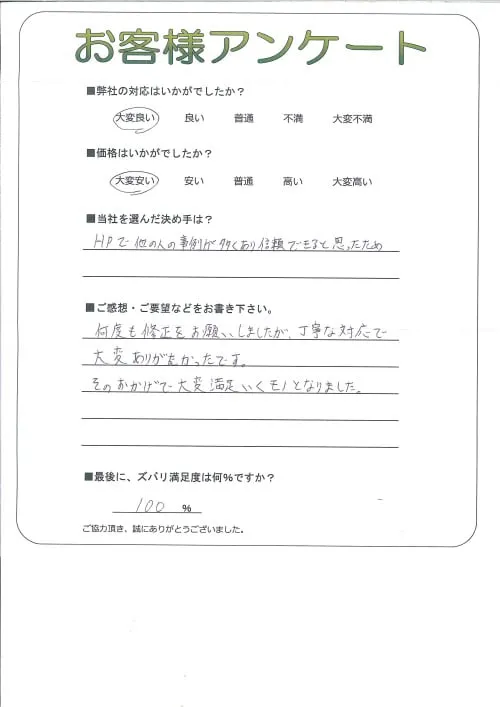 お客様アンケート
■弊社の対応はいかがでしたか？
大変良い 良い 普通 不満 大変不満
■価格はいかがでしたか？
大変安い 安い 普通 高い 大変高い
■当社を選んだ決め手は？
HPで他の人の事例が多くあり信頼できると思ったため
■ご感想・ご要望などをお書き下さい。
何度も修正をお願いしましたが、丁寧な対応で
大変ありがたかったです。
そのおかげで大変満足いくモノとなりました。
■最後に、ズバリ満足度は何%ですか？
100 %
ご協力頂き、誠にありがとうございました。